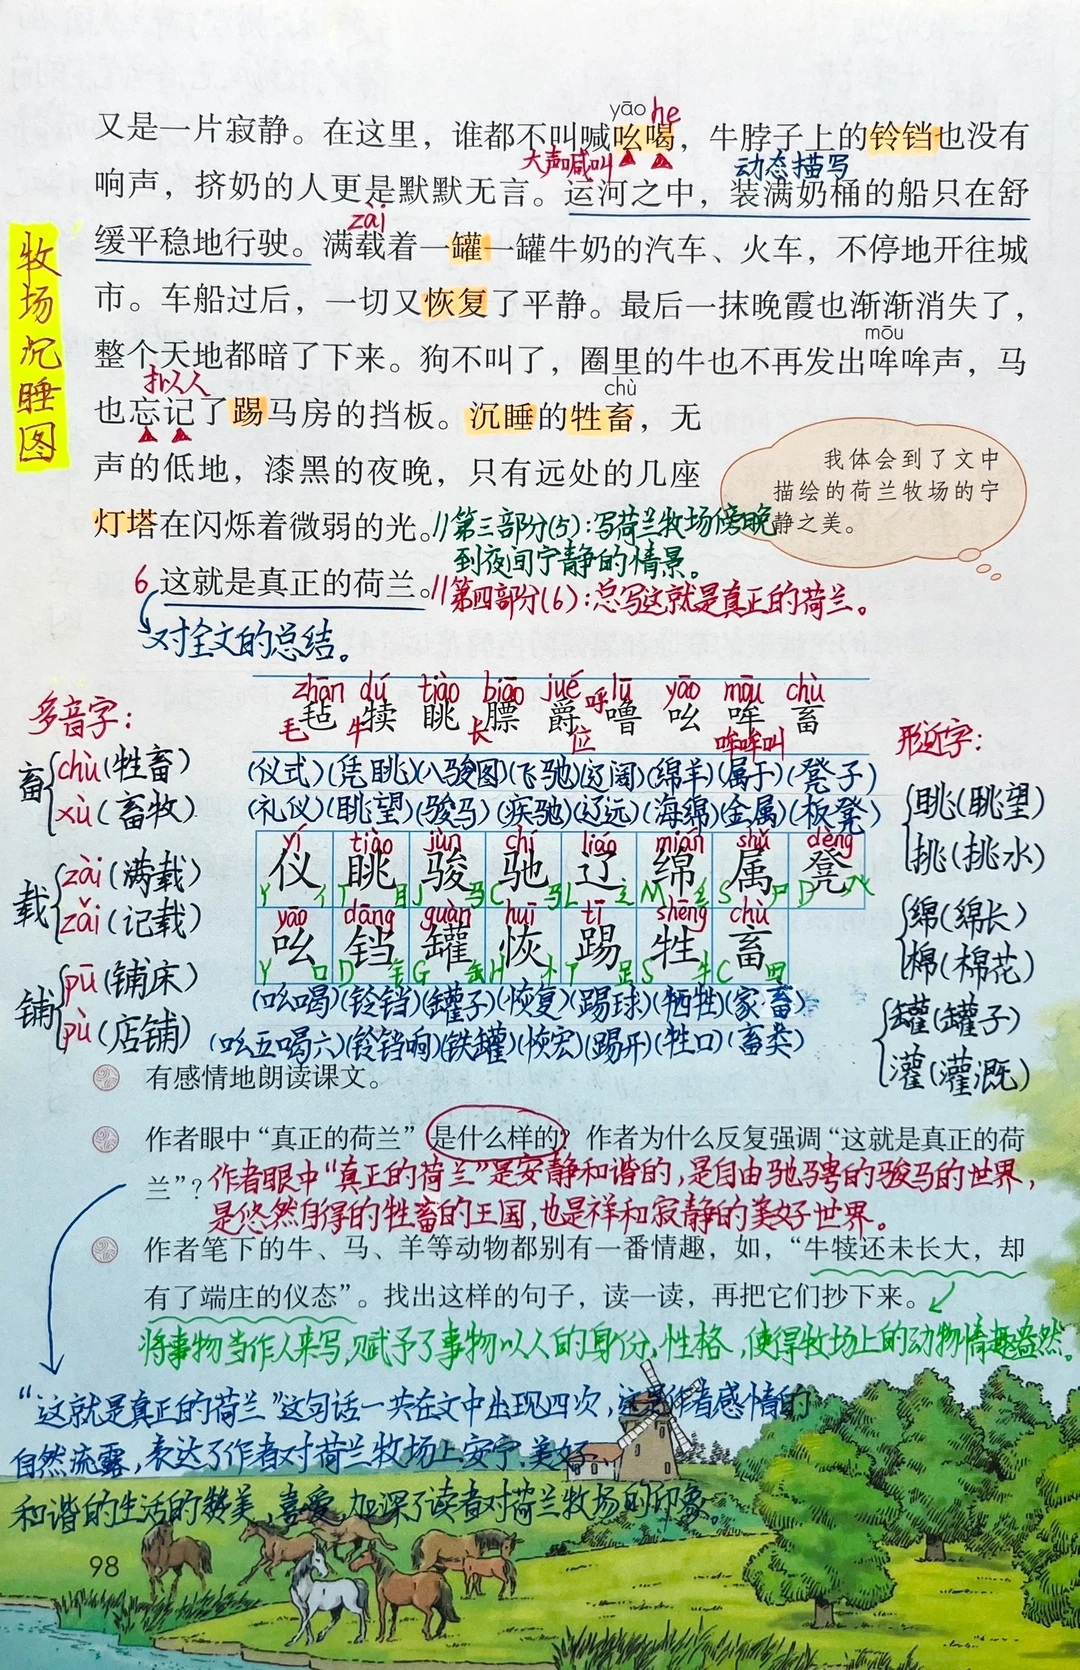 yāo he
又是一片寂静。在这里，谁都不叫喊吆喝，牛脖子上的铃铛也没有
大声喊叫 动态描写
响声，挤奶的人更是默默无言。运河之中，装满奶桶的船只在舒
zài
缓平稳地行驶。满载着一罐一罐牛奶的汽车、火车，不停地开往城
市。车船过后，一切又恢复了平静。最后一抹晚霞也渐渐消失了，
mōu
整个天地都暗了下来。狗不叫了，圈里的牛也不再发出哞哞声，马
拟人 chù
也忘记了踢马房的挡板。沉睡的牲畜，无
声的低地，漆黑的夜晚，只有远处的几座
灯塔在闪烁着微弱的光。//第三部分(5)：写荷兰牧场傍晚
到夜间宁静的情景。
牧场沉睡图
我体会到了文中
描绘的荷兰牧场的宁
静之美。
6 这就是真正的荷兰。//第四部分(6)：总写这就是真正的荷兰。
对全文的总结。
zhān dú tiào biāo jué lū yāo mōu chù
毡 犊 眺 膘 爵 噜 吆 哞 畜
毛 牛 长 位 呼 哞哞叫
多音字：
畜 chù(牲畜)
xù(畜牧)
载 zài(满载)
zǎi(记载)
铺 pū(铺床)
pù(店铺)
(仪式)(凭眺)(八骏图)(飞驰)(辽阔)(绵羊)(属于)(凳子)
(礼仪)(眺望)(骏马)(疾驰)(辽远)(海绵)(金属)(板凳)
yí tiào jùn chí liáo mián shǔ dèng
仪 眺 骏 驰 辽 绵 属 凳
Y 亻 T 目 J 马 C 马 L 辶 M 纟 S 尸 D 几
yāo dāng guàn huī tī shēng chù
吆 铛 罐 恢 踢 牲 畜
Y 口 D 钅 G 缶 H 忄 T 足 S 牛 C 田
(吆喝)(铃铛)(罐子)(恢复)(踢球)(牺牲)(家畜)
(吆五喝六)(铃铛响)(铁罐)(恢宏)(踢开)(牲口)(畜类)
形近字：
眺(眺望)
挑(挑水)
绵(绵长)
棉(棉花)
罐(罐子)
灌(灌溉)
有感情地朗读课文。
作者眼中“真正的荷兰”是什么样的？作者为什么反复强调“这就是真正的荷
兰”？
作者眼中“真正的荷兰”是安静和谐的，是自由驰骋的骏马的世界，
是悠然自得的牲畜的王国，也是祥和寂静的美好世界。
作者笔下的牛、马、羊等动物都别有一番情趣，如，“牛犊还未长大，却
有了端庄的仪态”。找出这样的句子，读一读，再把它们抄下来。
将事物当作人来写，赋予了事物以人的身份、性格，使得牧场上的动物情趣盎然。
“这就是真正的荷兰”这句话一共在文中出现四次，这是作者感情的
自然流露，表达了作者对荷兰牧场上安宁、美好、
和谐的生活的赞美，喜爱，加深了读者对荷兰牧场的印象。
98